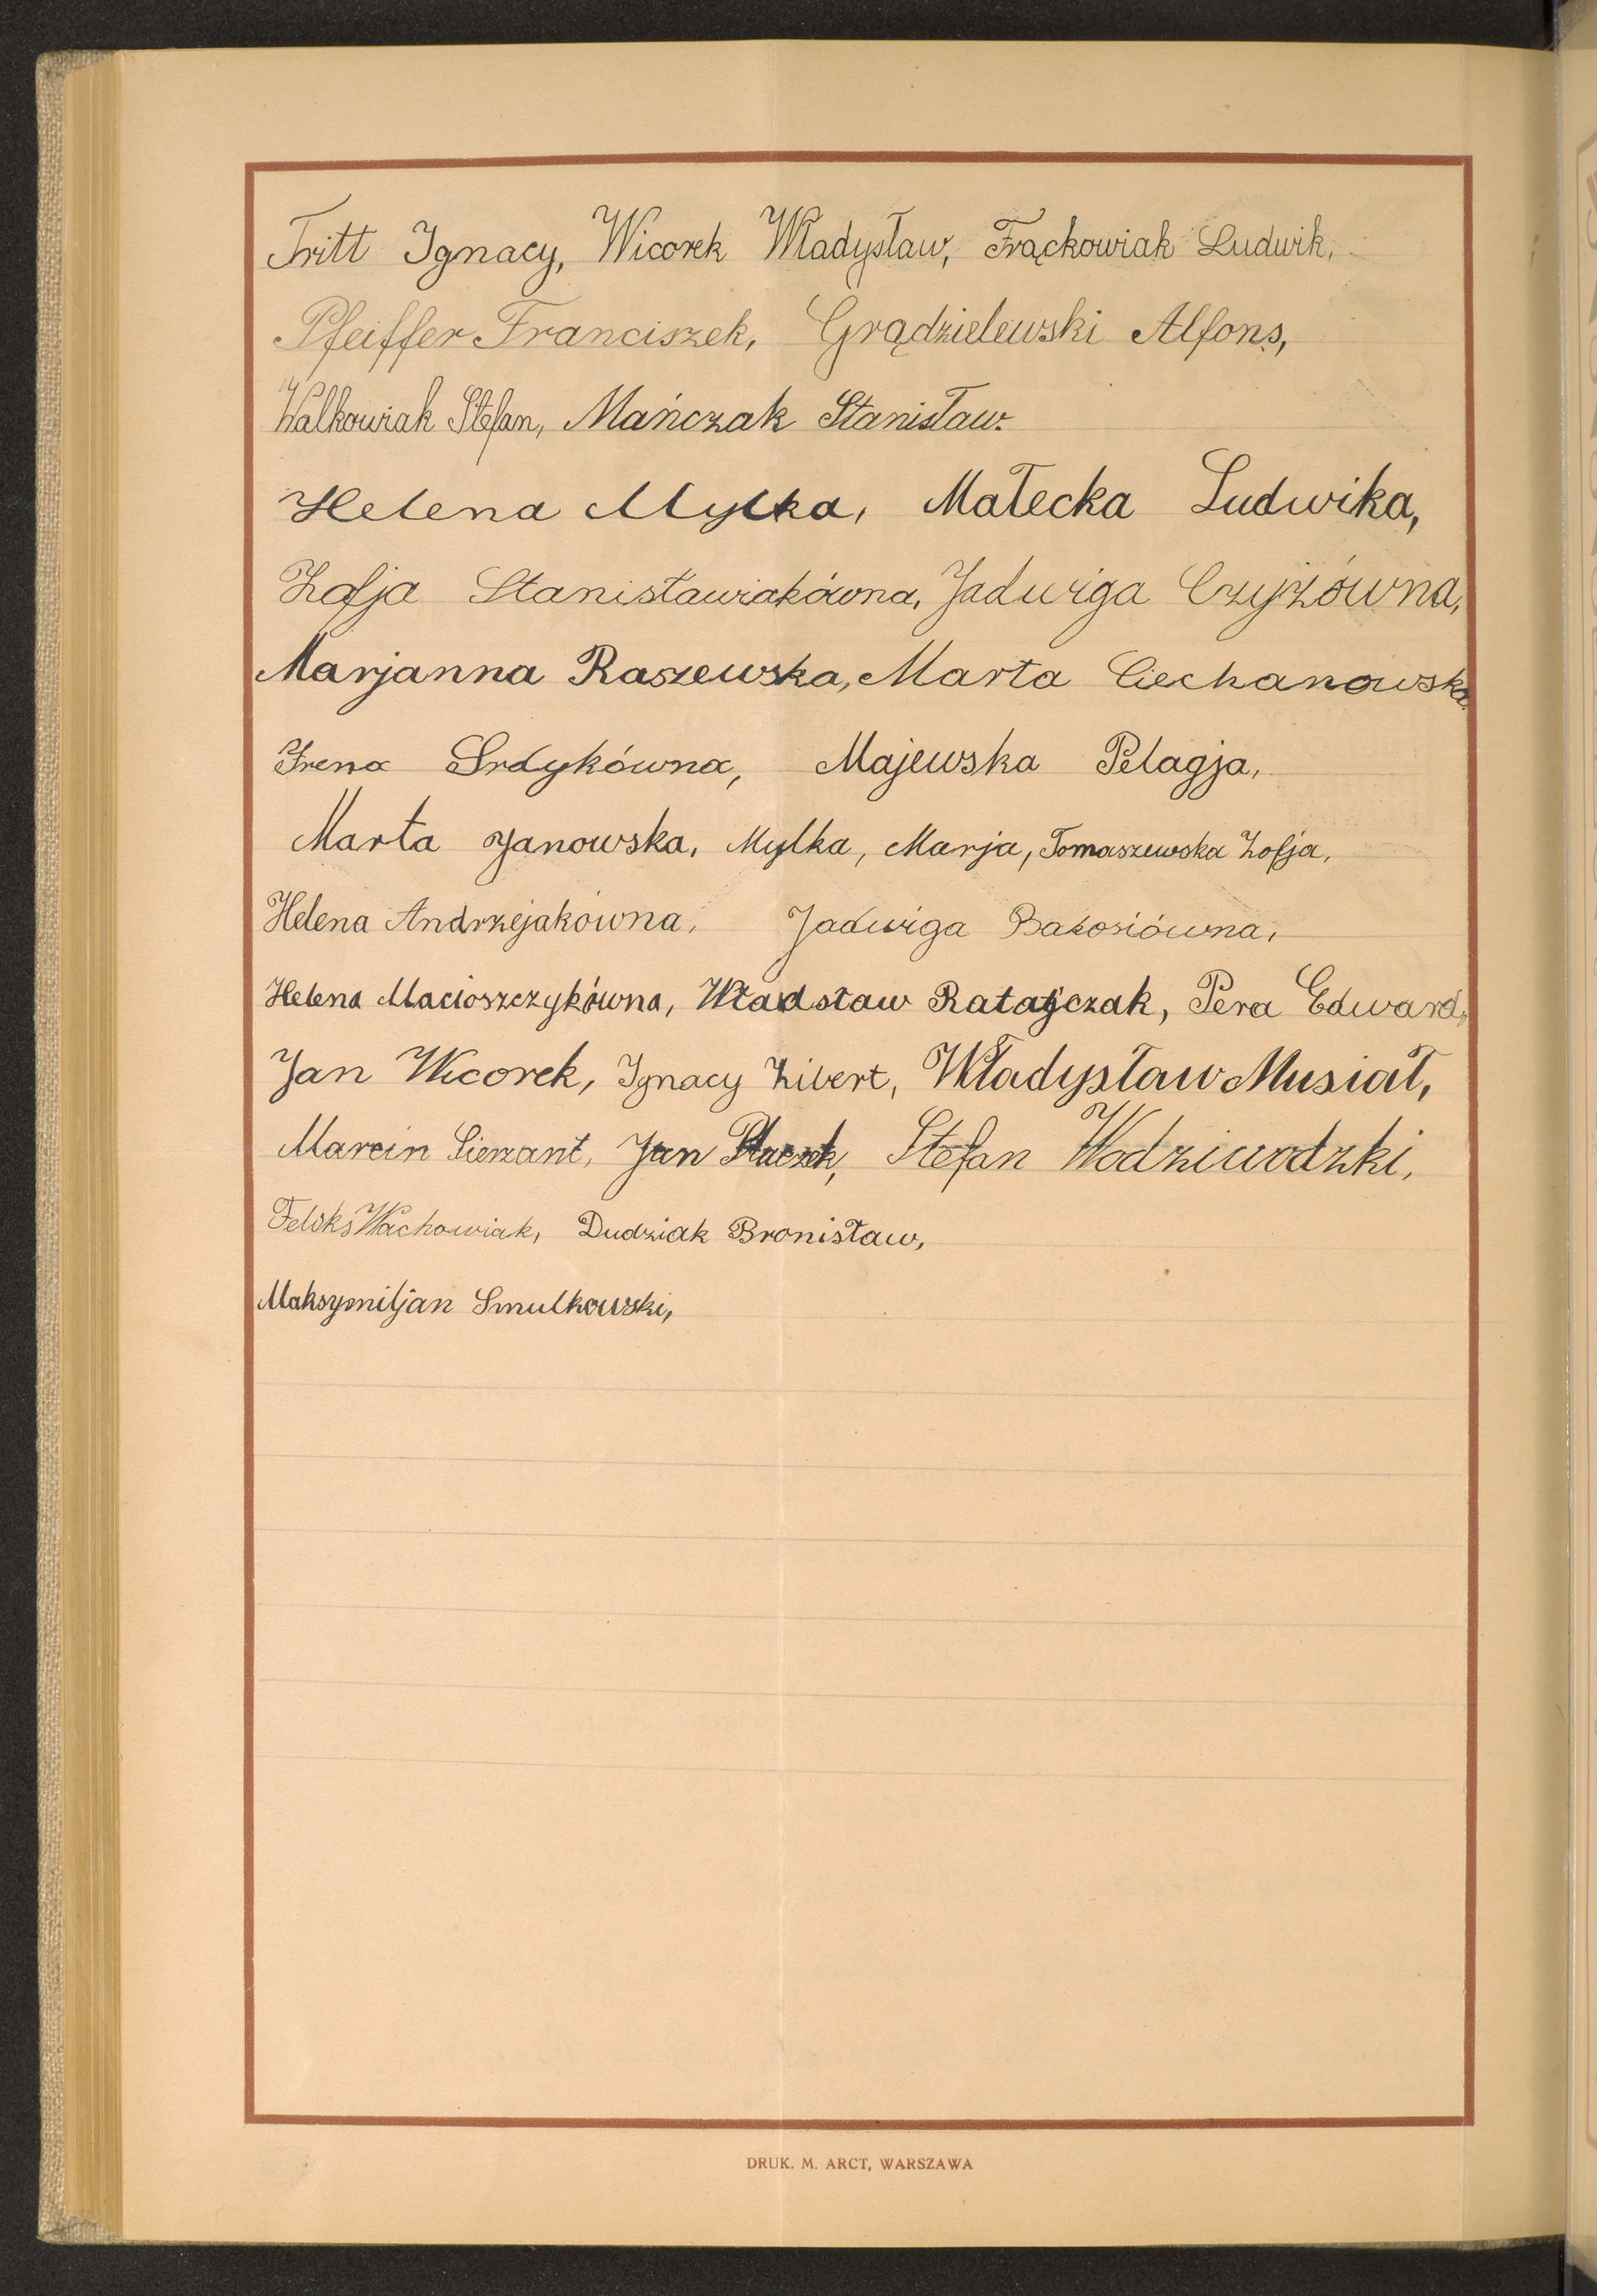 Tritt Ignacy, Wicorek Władysław, Frąckowiak Ludwik,
Pfeiffer Franciszek, Grądzielewski Alfons,
Walkowiak Stefan, Mańczak Stanisław.
Helena Mylka, Małecka Ludwika,
Zofja Stanisławiakówna, Jadwiga Czyżówna,
Marjanna Raszewska, Marta Ciechanowska
Irena Srdykówna, Majewska Pelagja,
Marta Janowska, Mylka, Marja, Tomaszewska Zofja,
Helena Andrzejakówna, Jadwiga
Helena Macioszczykówna, Władsław Ratajczak, Pera Edward,
Jan Wicorek, Ignacy Zibert, Władysław Musiał,
Marcin Sierzant, Jan Stefan Wodziwodzki,
Feliks Wachowiak, Dudziak Bronisław,
Maksymiljan Smulkowski,
DRUK. M. ARCT, WARSZAWA